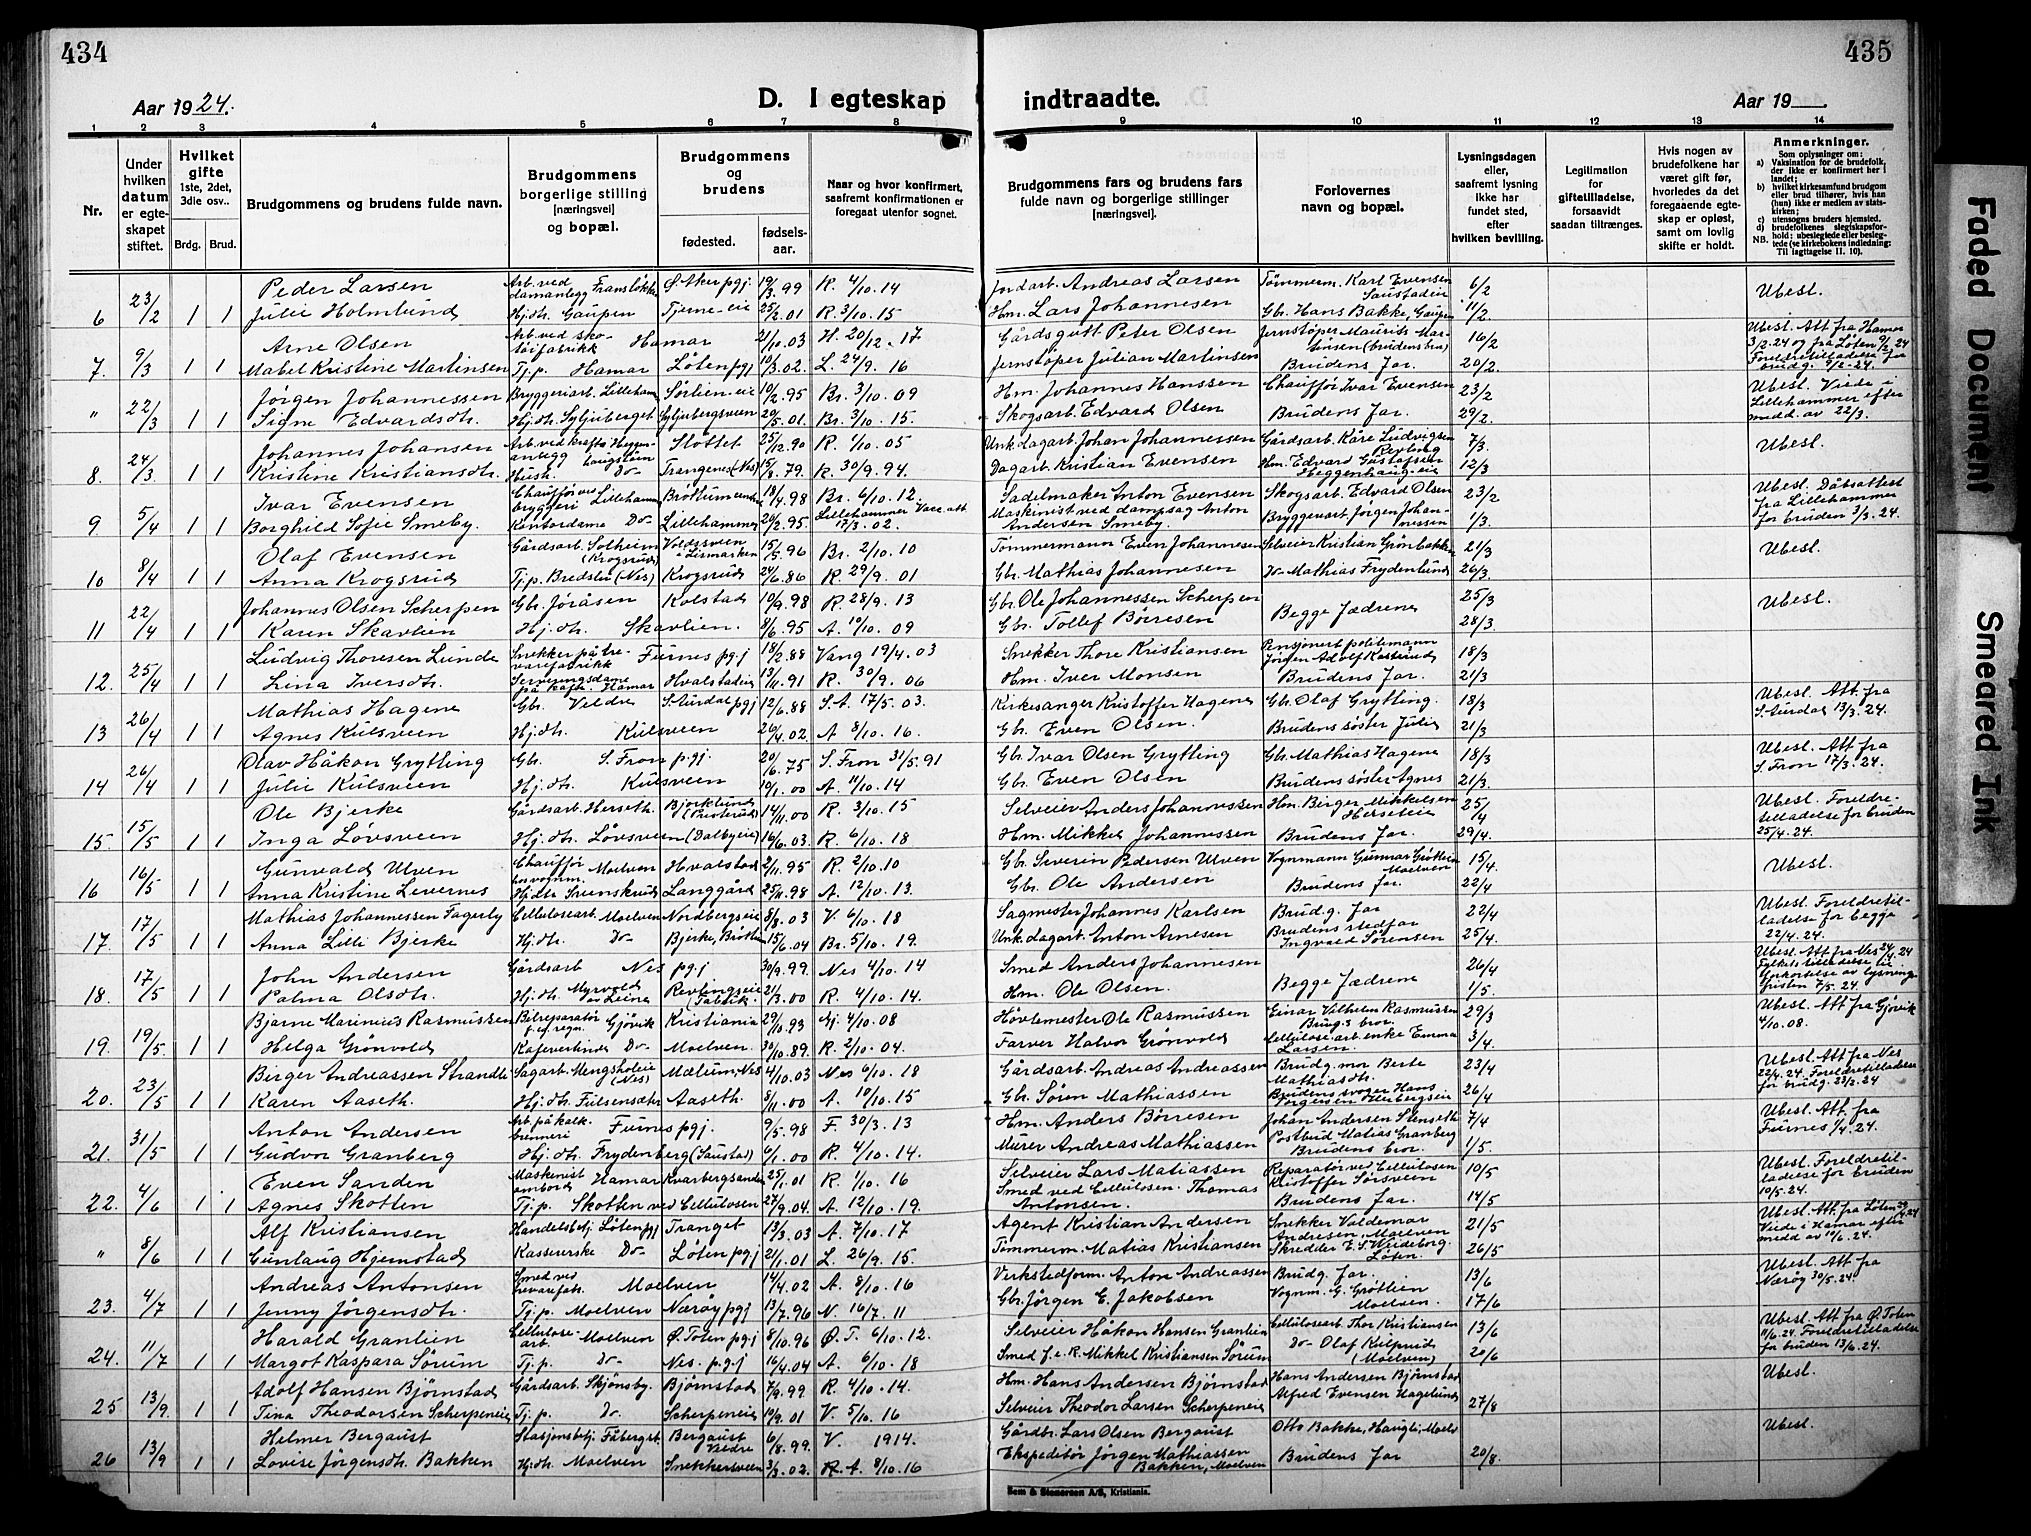 434
435
Aar 1924.
D. I egteskap
indtraadte.
Aar 19
1 2 3 4 5 6 7 8 9 10 11 12 13 14
Nr.
Under hvilken datum er egteskapet stiftet.
Hvilket gifte 1ste, 2det, 3die osv..
Brdg. Brud.
Brudgommens og brudens fulde navn.
Brudgommens borgerlige stilling [næringsvei] og bopæl.
Brudgommens og brudens
fødested.
fødselsaar.
Naar og hvor konfirmert, saafremt konfirmationen er foregaat utenfor sognet.
Brudgommens fars og brudens fars fulde navn og borgerlige stillinger [næringsvei].
Forlovernes navn og bopæl.
Lysningsdagen eller, saafremt lysning ikke har fundet sted, efter hvilken bevilling.
Legitimation for giftetilladelse, forsaavidt saadan tiltrænges.
Hvis nogen av brudefolkene har været gift før, hvorledes da det foregaaende egteskap er opløst, samt om lovlig skifte er holdt.
Anmerkninger.
Som oplysninger om:
a) Vaksination for de brudefolk, der ikke er konfirmert her i landet;
b) hvilket kirkesamfund brudgom eller brud tilhører, hvis han (hun) ikke er medlem av statskirken;
c) utensogns bruders hjemsted.
d) brudefolkenes slegtskapsforhold: ubeslegtede eller beslegtede (se kirkebokens indledning: Til Iagttagelse II. 10).
NB.
Peder Larsen Arb. ved damanlegg Ø. Aker pgj. 19/3.99 R. 4/10.14 Jordarb. Andreas Larsen Tømmerm. Karl Evensen 6/2 Ubesl.
6 23/2 1 1 Julie Holmlund Hj.dt. Gaupen Tjerne-eie 25/2.01 R. 3/10.15 Hm. Lars Johannesen Gbr. Hans Bakke, Gaupen 11/2
Arne Olsen Arb. ved skotøifabrikk Hamar 21/10.03 H. 20/12.17 Gårdsgutt Peter Olsen Jernstøper Maurits Martinsen (brudens bror) 16/2 Ubesl. Att. fra Hamar 3/2.24 og fra Løten 9/2.24
7. 9/3 1 1 Mabel Kristine Martinsen Tj.p. Hamar Løten pgj 10/3.02. L. 24/9.16 Jernstøper Julian Martinsen Brudens far. 20/2. Foreldretilladelse for brudg. 9/2-24.
Jørgen Johannessen Bryggeriarb. Lilleham. Sørlien-eie 10/2.95 Br. 3/10.09 Hm. Johannes Hanssen Chauffør Ivar Evensen 23/2 Ubesl. Viede i
" 22/3 1 1 Signe Edvardsdt. Hj.dt. Syljuberget Syljubergsveen 20/5.01 Br. 3/10.15. Skogsarb. Edvard Olsen Brudens far. 29/2. Lillehammer efter medd. av 22/3.
Johannes Johansen Slottet 25/12.90 R. 1/10.05 Unk. dagarb. Johan Johannessen Gårdsarb. Kåre Ludvigsen 7/3 Ubesl.
8. 24/3 1 1 Kristine Kristiansdt. Hush. Do- Trangenes (Nes) 15/2.79. R. 30/9.94. Dagarb. Kristian Evensen Hm. Edvard Gustafsen Heggenhaug-eie 12/3
Ivar Evensen Chauffør ved bryggeri Lillehammer Brøttum 18/4.98 Br. 6/10.12. Sadelmaker Anton Evensen Skogsarb. Edvard Olsen 23/2 Ubesl. Dåbsattest
9 5/4 1 1 Borghild Sofie Smeby. Kontordame Do- Lillehammer 26/2.95 Lillehammer Vacc.att. 17/3.02. Maskinist ved dampsag Anton Andersen Smeby. Bryggeriarb. Jørgen Johannessen 1/3. fra Lillehammer for bruden 3/3.24.
Olaf Evensen Gårdsarb. Solheim (Krogsrud) 15/5.96 Br. 2/10.10 Tømmermann Even Johannesen Selveier Kristian Grønbakken 21/3 Ubesl.
10 8/4 1 1 Anna Krogsrud Tj.p. Bredsli (Nes) Krogsrud 24/6.86 R. 29/9.01 Gbr. Mathias Johannesen Do- Mathias Frydenlund 26/3.
Johannes Olsen Scherpen Gbr. Jøråsen Kolstad 10/9.98 R. 28/9.13 Gbr. Ole Johannessen Scherpen Begge fædrene 25/3 Ubesl.
11 22/4 1 1 Karen Skavlien Hj.dt. Skavlien. 8/6.95 A. 19/10.09 Gbr. Tollef Børresen 28/3.
Ludvig Thoresen Lunde Snekker på trevarefabrikk Furnes pgj 18/2.88 Vang 19/4.03 Snekker Thore Kristiansen Pensjonert politimann Jørgen Adolf Kastrud 18/3
12. 25/4 1 1 Lina Iversdt. Serveringsdame på kafé. Hamar Hvalstadeie 13/11.91 R. 30/9.06 Hm. Iver Monsen Brudens far. 21/3.
Mathias Hagene Gbr. Veldre S. Aurdal pgj 12/6.88 S.A. 17/5.03. Kirkesanger Kristoffer Hagene Gbr. Olaf Grytting. 18/3 Ubesl. Att. fra
13 26/4 1 1 Agnes Kulsveen Hj.dt. Kulsveen 26/4.02 A 8/10.16. Gbr. Even Olsen. Brudens søster Julie 21/3 S. Aurdal 13/3.24.
Olav Håkon Grytting Gbr. S. Fron pgj. 20/6.75 S. Fron 31/5.91 Gbr. Ivar Olsen Grytting Gbr. Mathias Hagene 18/3 Ubesl. Att fra
14 26/4 1 1 Julie Kulsveen Hj.dt. Kulsveen 19/1.00 A. 11/10.14 Gbr. Even Olsen Brudens søster Agnes 21/3. S. Fron 17/3.24.
Ole Bjerke Gårdsarb. Herseth. Bjørklund (Præsterud) 14/11.00 R. 3/10.15 Selveier Anders Johannessen Hm. Birger Mikkelsen Herseteie 25/4 Ubesl. Foreldre-
15. 15/5 1 1 Inga Løvsveen Hj.dt. Løvsveen (Dalbyeie) 16/6.03 R. 6/10.18 Hm. Mikkel Johannessen Brudens far. 29/4. tilladelse for bruden 25/4.24.
Gunvald Ulven Chauffør hos vognm. Moelven Hvalstad 2/11.95 R. 2/10.10 Gbr. Severin Pedersen Ulven Vognmann Gunnar Grøtlien Moelven 15/4 Ubesl.
16 16/5 1 1 Anna Kristine Levernes Hj.dt. Svenskrud Langgård 25/11.98 A. 12/10.13. Gbr. Ole Andersen Brudens far. 22/4
Mathias Johannessen Fagerly Cellulosearb. Moelven Nordbergseie 8/8.03 V. 6/10.18 Sagmester Johannes Karlsen Brudg. far 22/4 Ubesl. Foreldretil-
17. 17/5 1 1 Anna Lilli Bjerke Hj.dt. Do- Bjerke, Brøttum 15/6.04 Br. 5/10.19. Unk. dagarb. Anton Arnesen Brudens stedfar Ingvald Sørensen 25/4. ladelse for begge 22/4.24.
John Andersen Gårdsarb Nes pgj 30/9.99. Nes 4/10.14 Smed Anders Johannesen Begge fædrene 26/4 Ubesl. Att fra Nes 24/4.24
18. 17/5 1 1 Palma Olsdt. Hj.dt. Myrvold av Leine Revlingseie (Fabrik) 21/3.00 R. 4/10.14. Hm. Ole Olsen. 1/5. Fylkets tilladelse til forkortelse av lysningsfristen 7/5.24.
Bjarne Marinius Rasmussen Bilreparatør Gjøvik Kristiania 29/10.93 Gj. 4/10.08 Høvlemester Ole Rasmussen Einar Vilhelm Rasmussen Brudg.s bror 29/3 Ubesl. Att fra Gjøvik
19. 19/5 1 1 Helga Grønvold Kafevertinde Do- Moelven. 30/10.89. R. 2/10.04. Farver Halvor Grønvold Cellulosearb. enke Emma Larsen. 3/4. 4/10.08.
Birger Andreassen Strandli Sagarb. Mengsholeie (Nes) Mælum, Nes 4/10.03 Nes 6/10.18 Gårdsarb. Andreas Andreassen Brudg. mor Berte Mathiasdt. 23/4 Ubesl. Att fra Nes 22/4.24. Foreldretilladelse
20. 23/5 1 1 Karen Aaseth. Hj.dt. Fulsensæter Aaseth. 8/11.00 A. 10/10.15 Gbr. Søren Mathiassen Brudens svoger Hans Jørgensen 26/4 for brudg. 23/2.24
Anton Andersen Arb. på kalkbrenneri Furnes pgj. 9/5.98 F. 30/3.13 Hm. Anders Børresen Johan Andersen Stenseth 7/4 Ubesl. Att. fra
21. 31/5 1 1 Gudvor Granberg Hj.dt. Frydenberg (Saustad) 6/1.00 R. 4/10.14. Murer Andreas Mathiassen Postbud Matias Granberg Brudens bror 1/5. Furnes 1/4.24.
Even Sanden Maskinist ombord Hamar Kvarbergsanden 25/1.01 R. 1/10.16 Selveier Lars Matiassen Reparatør ved Cellulosen Kristoffer Sørsveen 10/5 Ubesl. Foreldretil-
22. 4/6 1 1 Agnes Skotten Tj.p. Skotten ved Cellulosen 27/9.04. A. 12/10.19. Smed ved Cellulosen. Thomas Antonsen Brudens far. 14/5 ladelse for bruden 10/5.24.
Alf Kristiansen Handelsbetj Løten pgj Tranget 13/3.03 A. 7/10.17 Agent Kristian Andersen Snekker Valdemar Andresen, Moelven 21/5 Ubesl. Att. fra Løten
" 8/6 1 1 Gunlaug Hjemstad Kassererske Do- Løten pgj 21/1.01 L. 26/9.15. Tømmerm. Matias Kristiansen Skredder E. S. Weideborg. Løten. 26/5 Viede i Hamar efter medd av 10/6.24.
Andreas Antonsen Smed ved trevarefabr. Moelven 14/4.02 A. 8/10.16 Verkstedform. Anton Andreassen Brudg. far. 13/6 Ubesl. Att fra
23. 4/7 1 1 Jenny Jørgensdt. Tj.p. Moelven Nærøy pgj 13/7.96 N. 16/7.11 Gbr. Jørgen E. Jakobsen Vognm. G. Grøtlien Moelven. 17/6 Nærøy 30/5.24
Harald Granlien Cellulosearb. Moelven Ø. Toten pgj 8/10.96 Ø.T. 6/10.12. Selveier Håkon Hansen Granlien Cellulosearb. Thor Kristiansen 13/6 Ubesl. Att fra Ø. Toten
24. 11/7 1 1 Margot Kaspara Sørum Tj.p. Do- Nes. pgj 16/4.04 A. 6/10.18 Smed f.e.R. Mikkel Kristiansen Sørum Do- Olaf Kulsrud (Moelven) 20/6 11/6.24 Foreldretilladelse for bruden 13/6.24.
Adolf Hansen Bjørnstad Gårdsarb. Skjønsby. Bjørnstad 7/9.99. R. 4/10.14. Hm. Hans Andersen Bjørnstad Hans Andersen Bjørnstad Ubesl.
25 13/9. 1 1 Tina Theodorsen Scherpeneie Tj.p. Do. Scherpeneie 10/9.01 V. 5/10.16 Selveier Theodor Larsen Scherpeneie Alfred Evensen Hagelund 27/8
Helmer Bergaust Stasjonsbetj. Fåbergst. Bergaust Veldre 6/8.99. V. 1914. Gårdbr. Lars Olsen Bergaust Otto Bakke, Haugli, Moelv Ubesl.
26 13/9 1 1 Lovise Jørgensdt. Bakken Hj.dt. Moelven Snekkersveen 3/3.02. R.A. 8/10.16 Ekspeditør Jørgen Mathiassen Bakken, Moelven Brudens far 20/8.
Sem & Stenersen A/S, Kristiania.
Faded Document
Smeared Ink